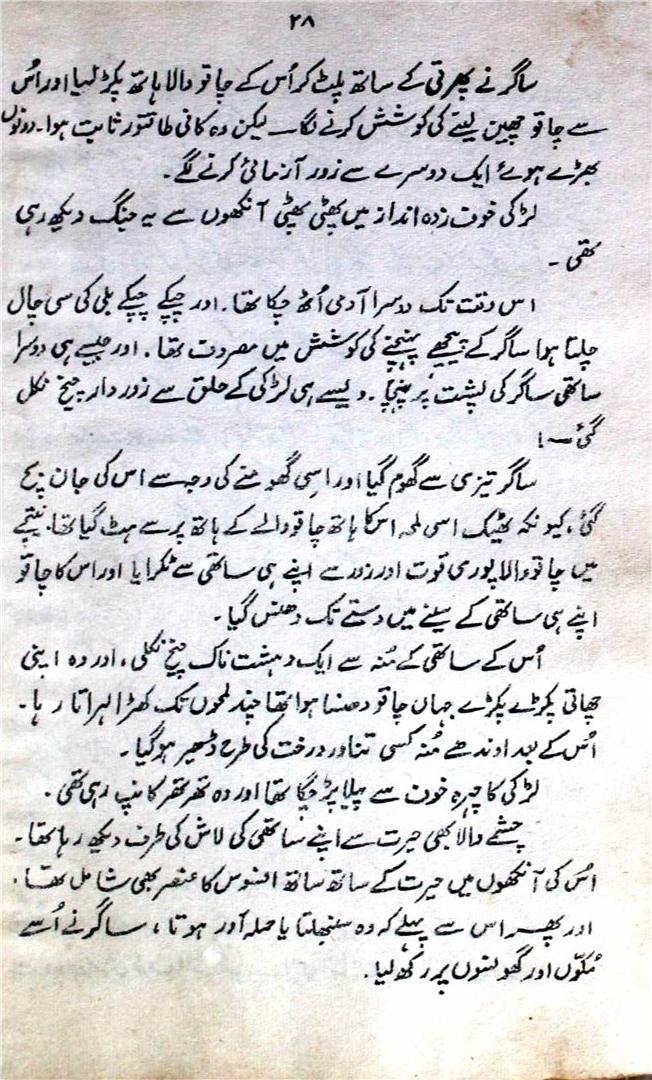 ۲۸
ساگر نے پھرتی کے ساتھ پلٹ کر اُس کے چاقو والا ہاتھ پکڑ لیا اور اُس
سے چاقو چھین لینے کی کوشش کرنے لگا۔ لیکن وہ کافی طاقتور ثابت ہوا۔ دونوں
بھڑے ہوئے ایک دوسرے سے زور آزمائی کرنے لگے۔
لڑکی خوف زدہ انداز میں پھٹی پھٹی آنکھوں سے یہ جنگ دیکھ رہی
تھی۔
اس وقت تک دوسرا آدمی اُٹھ چکا تھا۔ اور چپکے چپکے بلی کی سی چال
چلتا ہوا ساگر کے پیچھے پہنچنے کی کوشش میں مصروف تھا۔ اور جیسے ہی دوسرا
ساتھی ساگر کی پشت پر پہنچا۔ ویسے ہی لڑکی کے حلق سے زور دار چیخ نکل
گئی۔!
ساگر تیزی سے گھوم گیا اور اسی گھومنے کی وجہ سے اس کی جان بچ
گئی، کیونکہ ٹھیک اسی لمحہ اس کا ہاتھ چاقو والے کے ہاتھ پر سے ہٹ گیا تھا۔ نیتجے
میں چاقو والا پوری قوت اور زور سے اپنے ہی ساتھی سے ٹکرایا اور اس کا چاقو
اپنے ہی ساتھی کے سینے میں دستے تک دھنس گیا۔
اُس کے ساتھی کے مُنہ سے ایک دہشت ناک چیخ نکلی، اور وہ اپنی
چھاتی پکڑے پکڑے جہاں چاقو دھنسا ہوا تھا چند لمحوں تک کھڑا لہراتا رہا۔
اُس کے بعد اوندھے مُنہ کسی تناور درخت کی طرح ڈھیر ہو گیا۔
لڑکی کا چہرہ خوف سے پیلا پڑ چکا تھا اور وہ تھر تھر کانپ رہی تھی۔
چشمے والا بھی حیرت سے اپنے ساتھی کی لاش کی طرف دیکھ رہا تھا۔
اُس کی آنکھوں میں حیرت کے ساتھ ساتھ افسوس کا عنصر بھی شامل تھا۔
اور پھر اس سے پہلے کہ وہ سنبھلتا یا حملہ آور ہوتا، ساگر نے اُسے
مُکوّں اور گھونسوں پر رکھ لیا۔